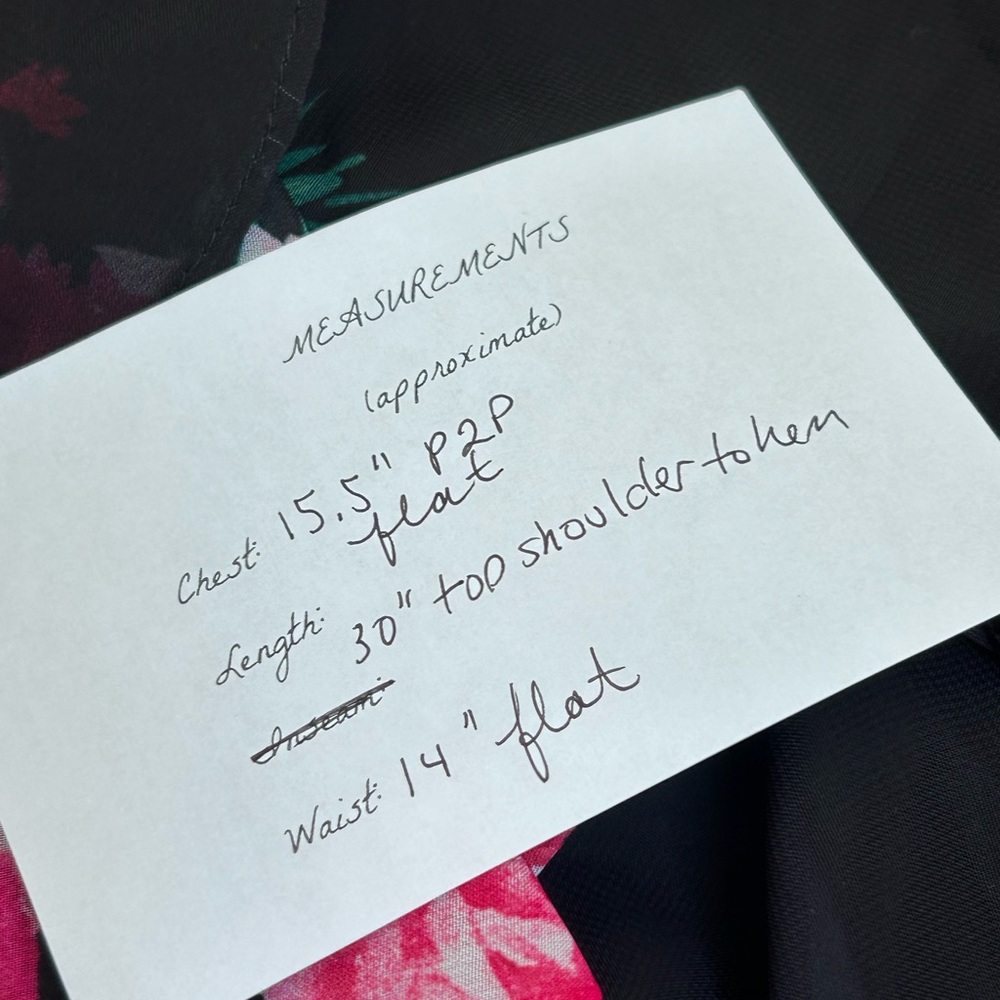 MEASUREMENTS
(approximate)
Chest: 15.5" P2P
flat
Length: 30" top shoulder to hem
Inseam:
Waist: 14" flat